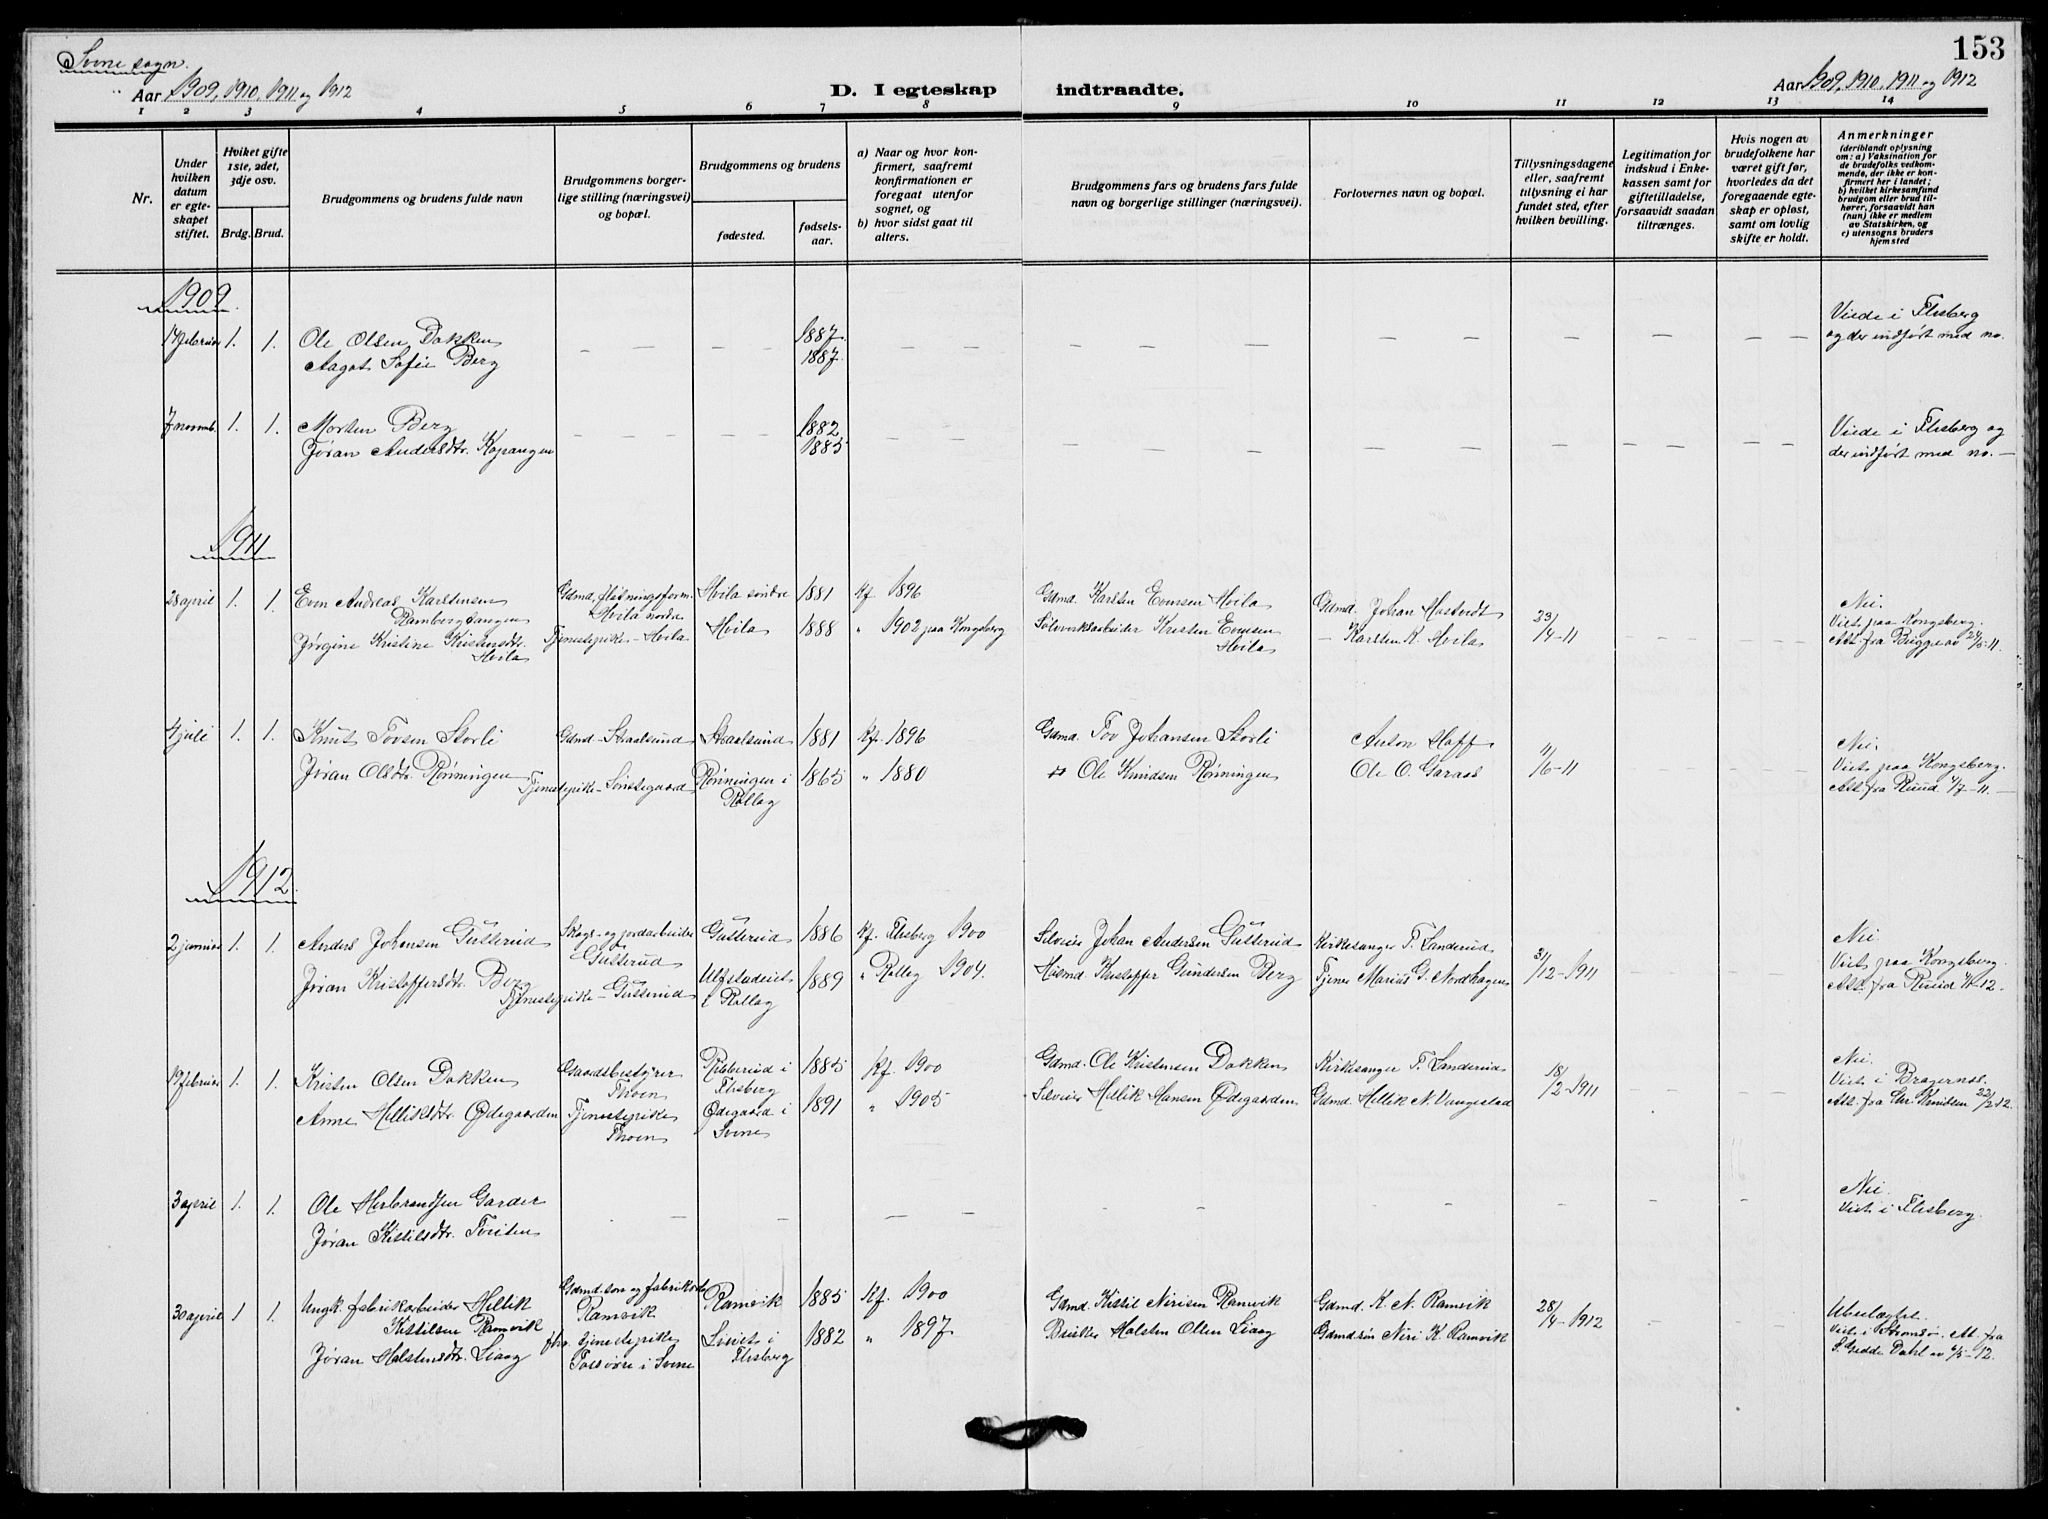 153
Svene sogn.
Aar 1909, 1910, 1911 og 1912
D. I egteskap indtraadte.
Aar 1909, 1910, 1911 og 1912
1 2 3 4 5 6 7 8 9 10 11 12 13 14
Nr.
Under hvilken datum er egteskapet stiftet.
Hviket gifte 1ste, 2det, 3dje osv.
Brdg. Brud.
Brudgommens og brudens fulde navn
Brudgommens borgerlige stilling (næringsvei) og bopæl.
Brudgommens og brudens
fødested. fødselsaar.
a) Naar og hvor konfirmert, saafremt konfirmationen er foregaat utenfor sognet, og
b) hvor sidst gaat til alters.
Brudgommens fars og brudens fars fulde navn og borgerlige stillinger (næringsvei).
Forlovernes navn og bopæl.
Tillysningsdagene eller, saafremt tillysning ei har fundet sted, efter hvilken bevilling.
Legitimation for indskud i Enkekassen samt for giftetilladelse, forsaavidt saadan tiltrænges.
Hvis nogen av brudefolkene har været gift før, hvorledes da det foregaaende egteskap er opløst, samt om lovlig skifte er holdt.
Anmerkninger (deriblandt oplysning om: a) Vaksination for de brudefolks vedkommende, der ikke er konfirmert her i landet; b) hvilket kirkesamfund brudgom eller brud tilhører, forsaavidt han (hun) ikke er medlem av Statskirken, og c) utensogns bruders hjemsted
1909.
14 februar 1. 1. Ole Olsen Dokken 1887. Viede i Flesberg
Aagot Sofie Berg 1887. og der indført med no.
7 novemb. 1. 1. Morten Berg 1882 Viede i Flesberg og
Jøran Andersdtr. Kopangen 1885 der indført med no.
1911
28 april 1. 1. Even Andreas Karstensen Gdmd, fløtningsform. Hvila søndre 1881 Kf 1896 Gdmd. Karsten Evensen Hvila Gdmd. Johan Hostvedt 23/4-11 Nei.
Rambergtangen Hvila nordre Viet paa Kongsberg.
Jørgine Kristine Kristensdtr. Tjenestepike - Hvila Hvila 1888 " 1902 paa Kongsberg Sølverksarbeider Kristen Evensen - Karsten K. Hvila Att. fra Bugge av 24/5-11.
Hvila Hvila
4 juli 1. 1. Knut Tovsen Storli Gdmd - Straalsund Straalsund 1881 Kf. 1896 Gdmd. Tov Johansen Storli Anton Hoff 11/6-11 Nei.
Jøran Olsdtr. Rønningen Tjenestepike - Rønningen i 1865 " 1880 Ole Knudsen Rønningen Ole O. Garaas Viet paa Kongsberg.
Rollag Att. fra Ruud 4/7-11.
1912.
2 januar 1. 1. Anders Johansen Gutterud Skogs- og jordarbeider Gutterud 1886 Kf. Flesberg 1900 Selveier Johan Andersen Gutterud Kirkesanger T. Landerud 31/12-1911 Nei.
Gutterud Viet paa Kongsberg.
Jøran Kristoffersdtr. Berg 1889 " Rolleg 1904. Husmd. Kristoffer Gundersen Berg Tjener Marius G. Nordhagen Att. fra Ruud
Tjenestepike - Gutterud i Rollag
19 februar 1. 1. Kristen Olsen Dokken Gaardsbestyrer Ribberud i 1885 Kf. 1900 Gdmd. Ole Kristensen Dokken Kirkesanger T. Landerud 18/2-1911 Nei.
Thoen Flesberg Viet i Bragernes.
Anne Helliksdtr. Ødegaarden Tjenestepike Ødegaard i 1891 " 1905 Selveier Hellik Hansen Ødegaarden Gdmd. Hellik N. Vangestad Att. fra Chr. Knudsen 22/2-12.
Thoen Svene
3 april 1. 1. Ole Herbrandsen Garder Nei.
Jøran Kittilsdtr. Tveiten Viet i Flesberg.
30 april 1 1. Ungk. fabrikarbeider Hellik Gdmd.søn og fabrikarb. Ramvik 1885 Kf. 1900 Gdmd. Kittil Nirisen Ramvik Gdmd. K. N. Ramvik 28/4-1912 Ubeslægtet.
Kittilsen Ramvik Ramvik Viet i Strømsø. Att. fra
Jøran Halstensdtr. Liaag tjenestepike i 1882 " 1897 Halsten Olsen Liaag Gdmdsøn Niri K. Ramvik S. Gedde Dahl av 6/5-12.
i Svene Flesberg